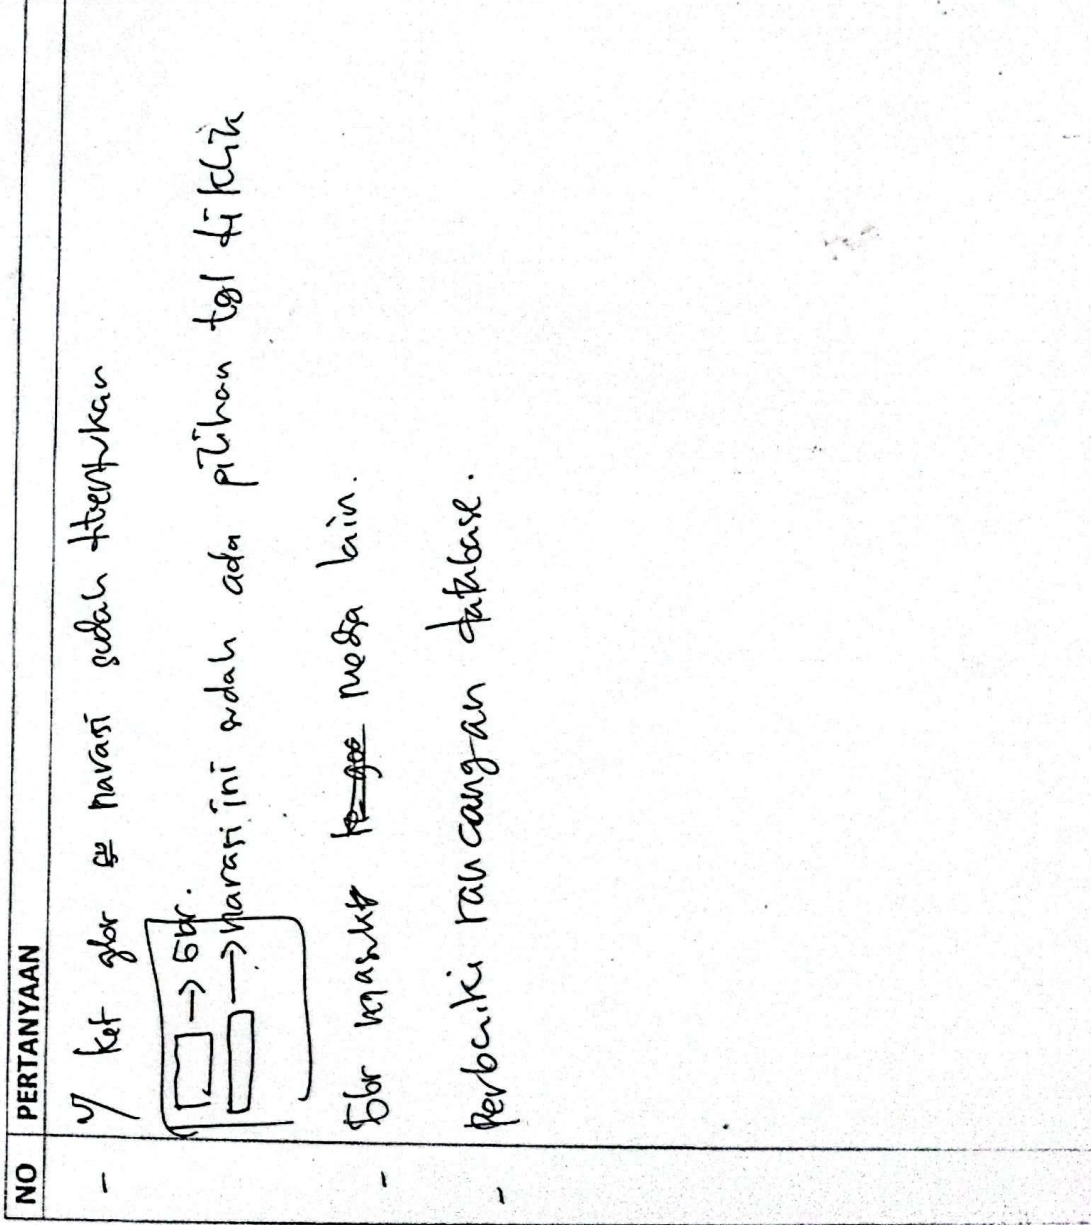 NO PERTANYAAN
- u/ ket gbr narasi sudah ditentukan
→ Gbr.
→ narasi ini sudah ada pilihan tgl di klik
- Gbr masuk media lain.
- Perbaiki rancangan database.